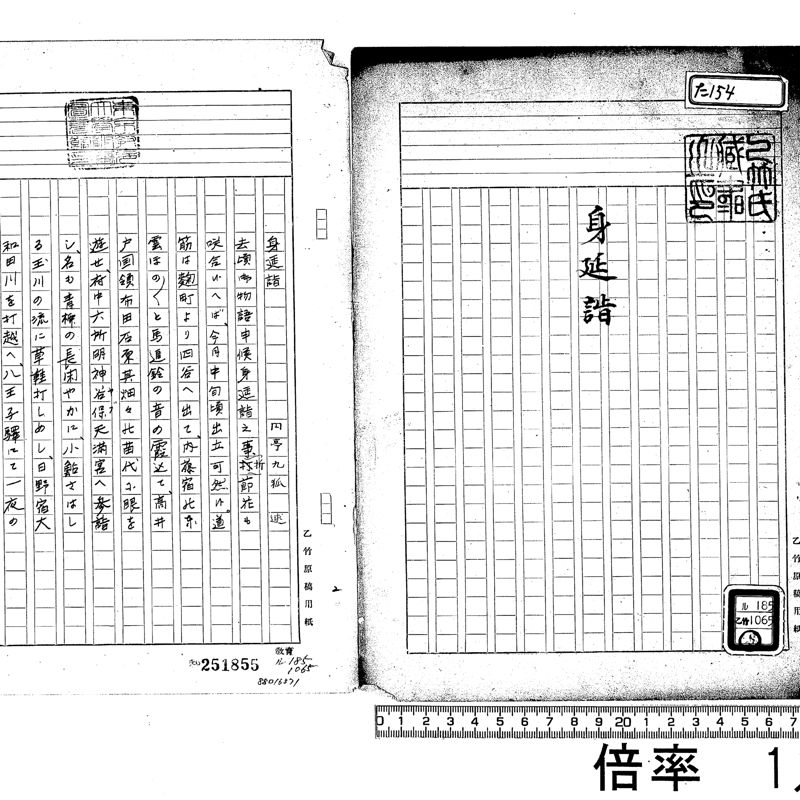 た154
乙竹氏蔵
身延詣
乙竹原稿用紙
ル 185
乙竹1065
身延詣
円亭九狐 述
去頃御物語申候身延詣之事、折節花も
咲合いへば、今月中旬頃出立可然候。道
筋は麹町より四谷へ出て、内藤宿の朿
雲ほの〲と馬追鈴の音の霞込て、高井
戸国領布田石原其畑々の苗代に眼を
遊せ、府中六所明神谷保天満宮へ参詣
し、名も青柳の長閑やかに、小鮎さばし
る玉川の流に草鞋打しめし、日野宿大
和田川を打越へ八王子驛にて一夜の
乙竹原稿用紙
2
251855
教育
ル185
1065
88016871
0 1 2 3 4 5 6 7 8 9 20 1 2 3 4 5 6 7
倍率 1